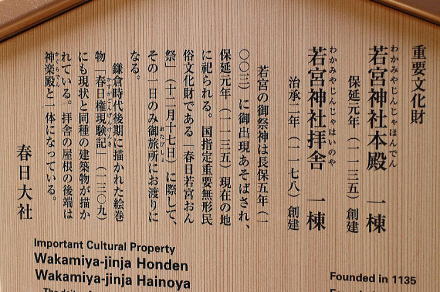 重要文化財
わかみやじんじゃほんでん
若宮神社本殿 一棟
保延元年（一一三五）創建
わかみやじんじゃはいのや
若宮神社拝舎 一棟
治承二年（一一七八）創建
若宮の御祭神は長保五年（一
〇〇三）に御出現あそばされ、
保延元年（一一三五）現在の地
に祀られる。国指定重要無形民
俗文化財である「春日若宮おん
祭」（十二月十七日）に際して、
その一日のみ御旅所にお渡りに
なる。
鎌倉時代後期に描かれた絵巻
物「春日権現験記」（一三〇九）
にも現状と同種の建築物が描か
れている。拝舎の屋根の後端は
神楽殿と一体になっている。
春日大社
Important Cultural Property
Wakamiya-jinja Honden
Wakamiya-jinja Hainoya
Founded in 1135